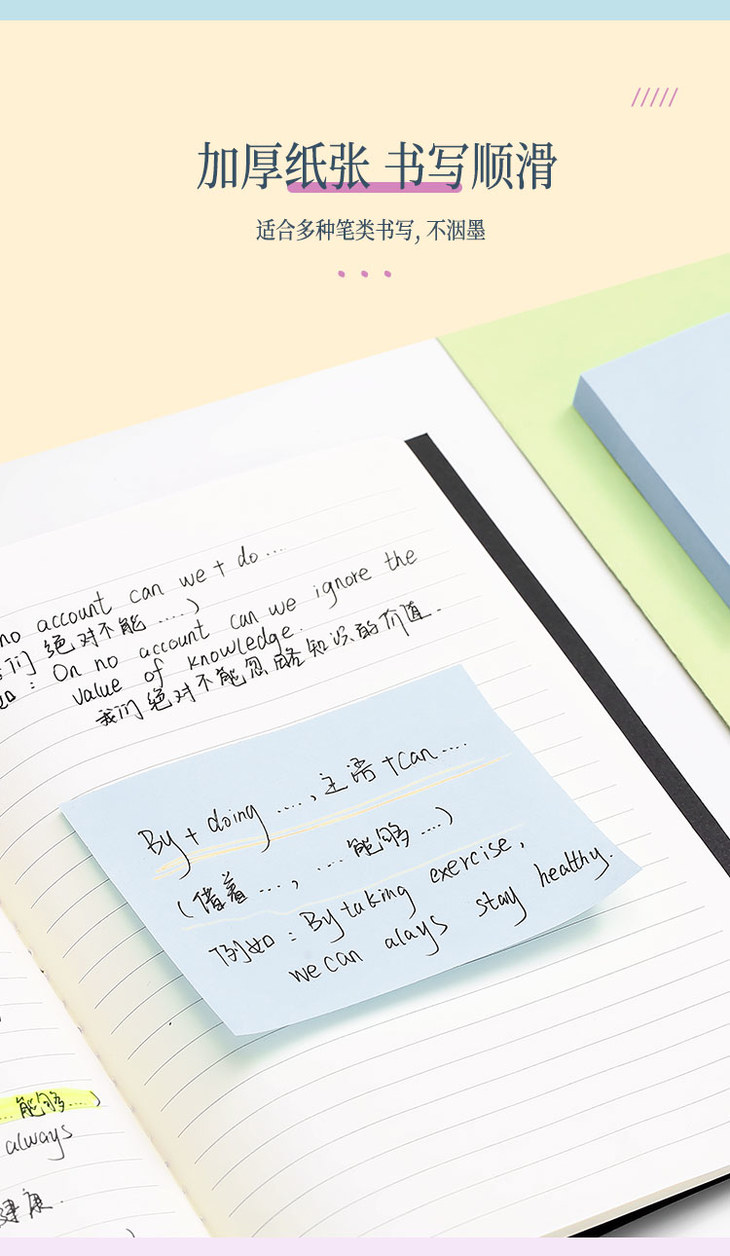 加厚纸张 书写顺滑
适合多种笔类书写, 不洇墨
no account can we + do ...
们 绝对不能 ....)
: On no account can we ignore the
value of knowledge.
我们 绝对不能忽略知识的价值.
By + doing ...., 主语 +can ....
(借着 ...., .... 能够 ....)
例如 : By taking exercise,
we can alays stay healthy.
... 能够 ...)
always
健康.